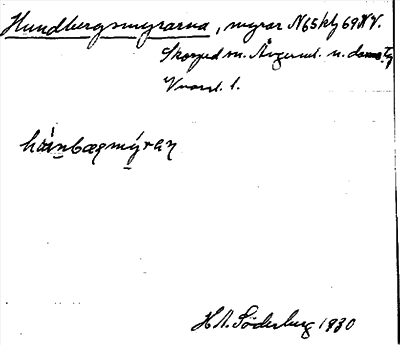 Hundbergsmyrarna, myrar N65kbg69NV.
Skorped sn. Ångerml. n. doms.
Vvarsl. 1.
hàinbæɡmýran
H A. Söderberg 1930